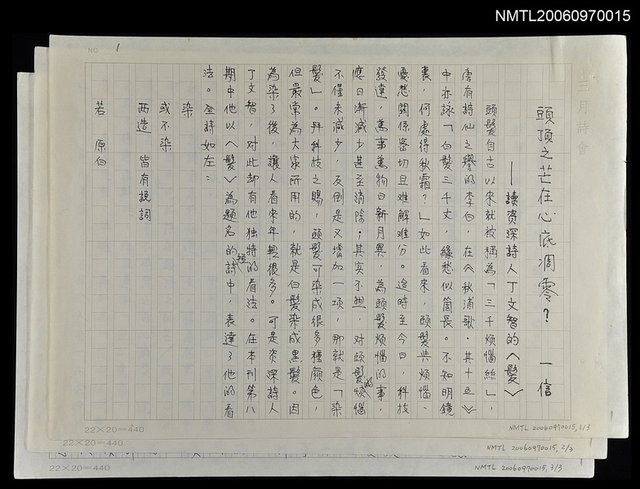 NMTL20060970015
NO. 1
頭頂之芒在心底凋零? 一信
——讀資深詩人丁文智的〈髮〉
頭髮自古以來就被稱為「三千煩惱絲」,
唐有詩仙之譽的李白,在〈秋浦歌‧其十五〉
中亦詠「白髮三千丈,緣愁似箇長。不知明鏡
裏,何處得秋霜?」如此看來,頭髮與煩惱、
憂愁關係密切且難解難分。迨時至今日,科技
發達,萬事萬物日新月異,為頭髮煩惱的事,
應日漸減少甚至消除;其實不然,對頭髮的煩惱
不僅未減少,反倒是又增加一項,那就是「染
髮」。拜科技之賜,頭髮可染成很多種顏色,
但最常為大家所用的,就是白髮染成黑髮。因
為染了後,讓人看來年輕很多。可是資深詩人
丁文智,對此卻有他獨特的看法。在本刊第八
期中他以〈髮〉為題名的短詩中,表達了他的看
法。全詩如左:
染
或不染
兩造 皆有說詞
若 原白
22×20=440
NMTL 20060970015, 1/3
22×20=440
NMTL 20060970015, 2/3
22×20=440
NMTL 20060970015, 3/3